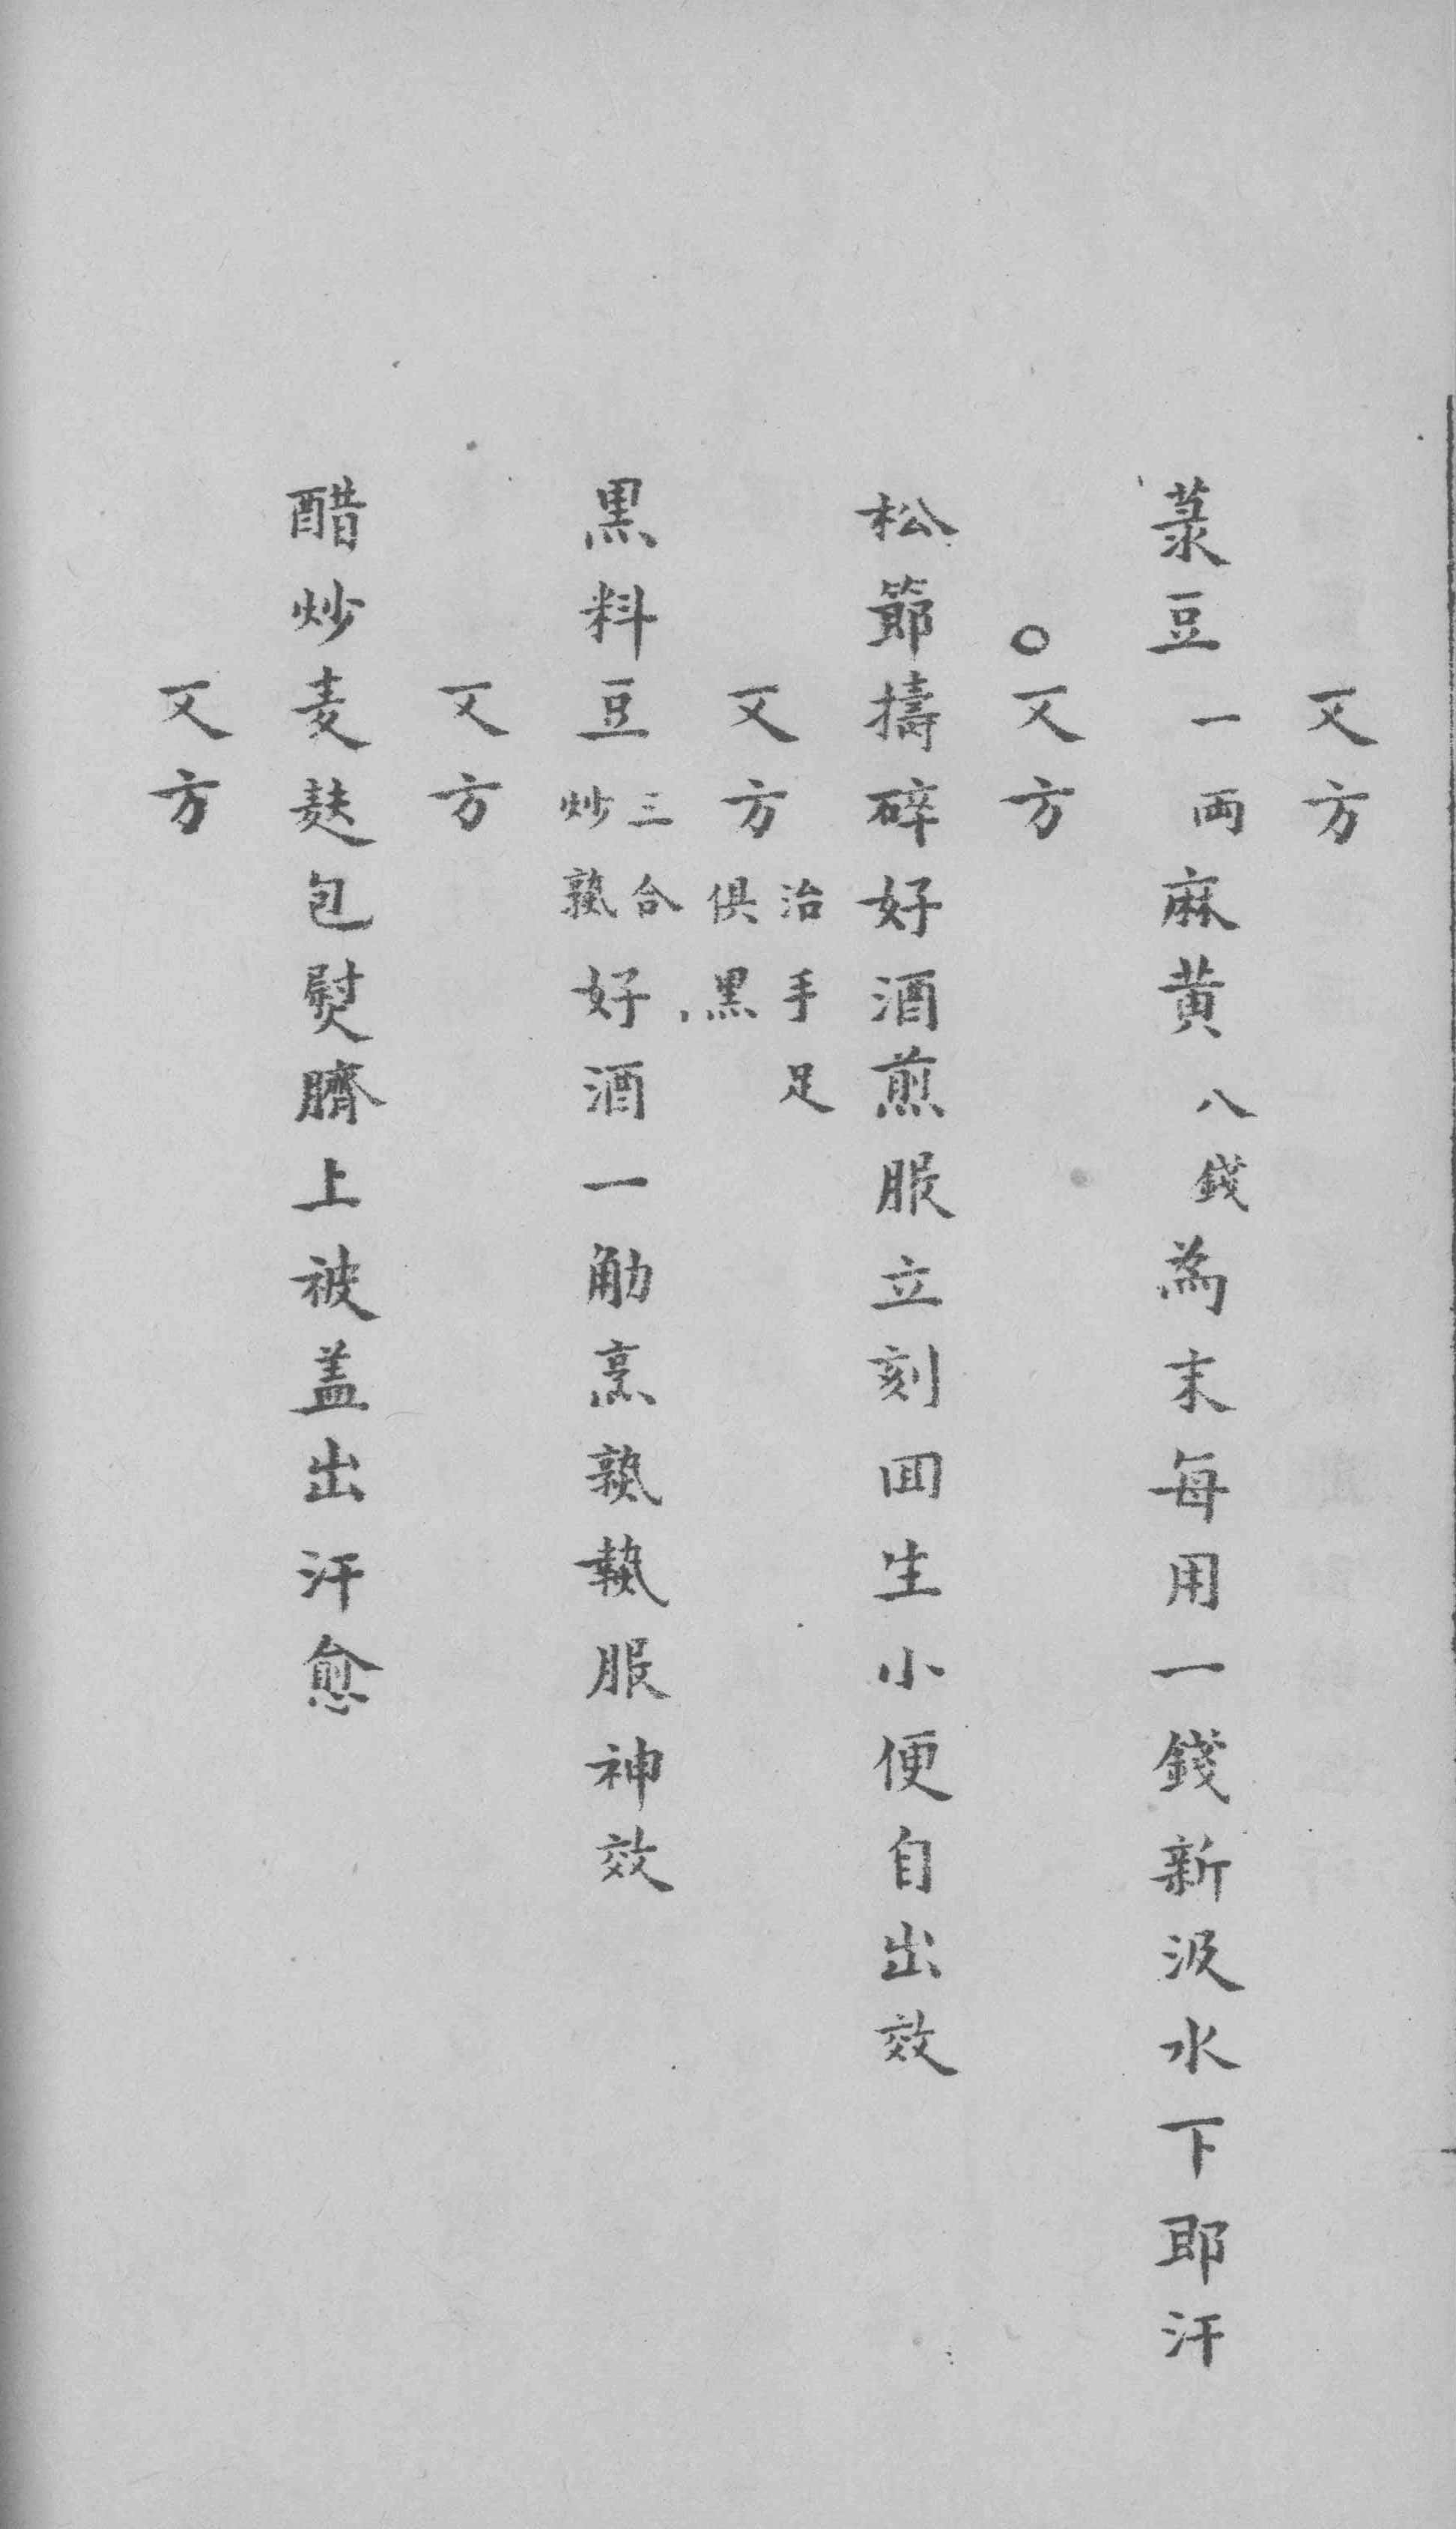 又方
菉豆一両麻黄八錢為末每用一錢新汲水下即汗
○又方
松節擣碎好酒煎服立刻囬生小便自出效
又方治手足俱黒
黒料豆三合炒熟好酒一觔烹熟熱服神效
又方
醋炒麦麸包熨臍上被盖出汗愈
又方